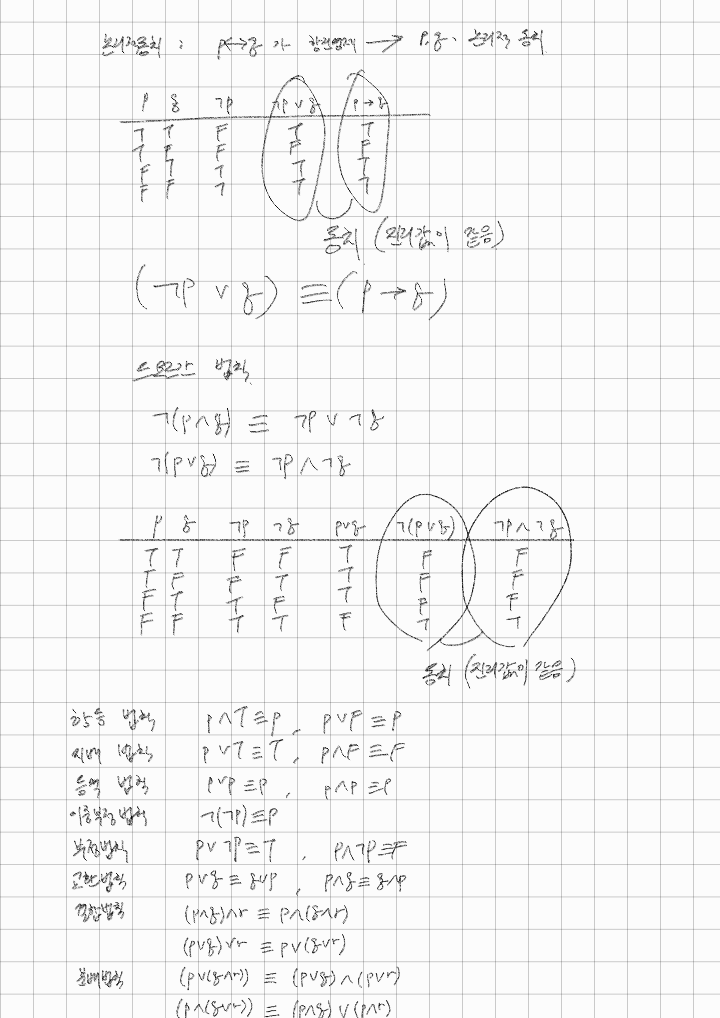 논리적동치 : p↔q 가 항진명제 → p, q. 논리적 동치
p q ¬p ¬p∨q p→q
T T F T T
T F F F F
F T T T T
F F T T T
동치 (진리값이 같음)
(¬p ∨ q) ≡ (p→q)
드모르간 법칙
¬(p∧q) ≡ ¬p ∨ ¬q
¬(p∨q) ≡ ¬p ∧ ¬q
p q ¬p ¬q p∨q ¬(p∨q) ¬p∧¬q
T T F F T F F
T F F T T F F
F T T F T F F
F F T T F T T
동치 (진리값이 같음)
항등 법칙 p∧T≡p, p∨F≡p
지배 법칙 p∨T≡T, p∧F≡F
등멱 법칙 p∨p≡p, p∧p≡p
이중부정법칙 ¬(¬p)≡p
부정법칙 p∨¬p≡T, p∧¬p≡F
교환법칙 p∨q≡q∨p, p∧q≡q∧p
결합법칙 (p∧q)∧r ≡ p∧(q∧r)
(p∨q)∨r ≡ p∨(q∨r)
분배법칙 (p∨(q∧r)) ≡ (p∨q)∧(p∨r)
(p∧(q∨r)) ≡ (p∧q)∨(p∧r)